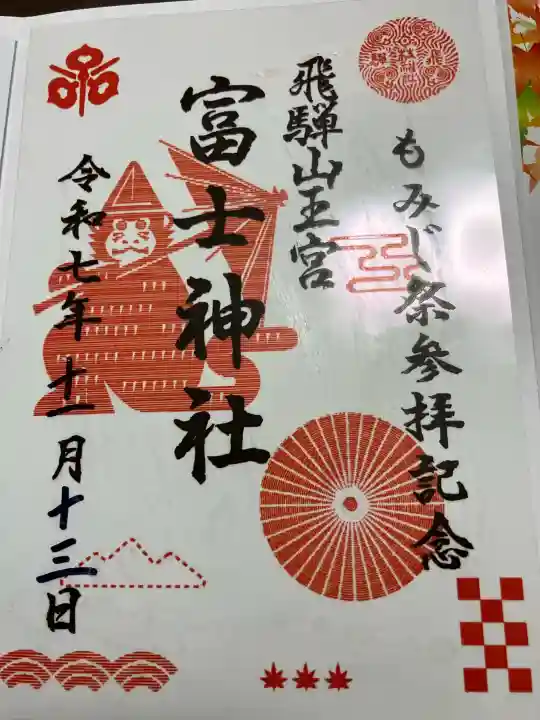 もみじ祭参拝記念
飛騨山王宮
富士神社
令和七年十一月十三日